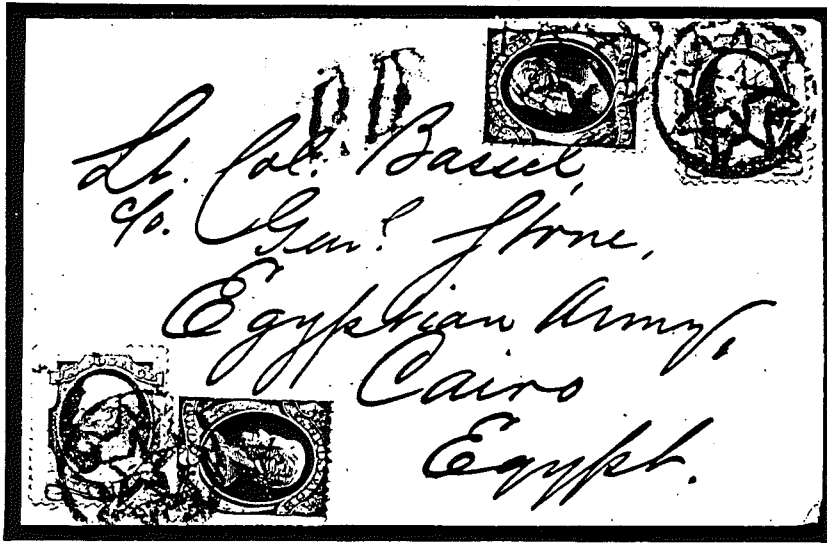 P.D.
Lt. Col. Bassel,
c/o. Genl. Stone,
Egyptian Army,
Cairo
Egypt.